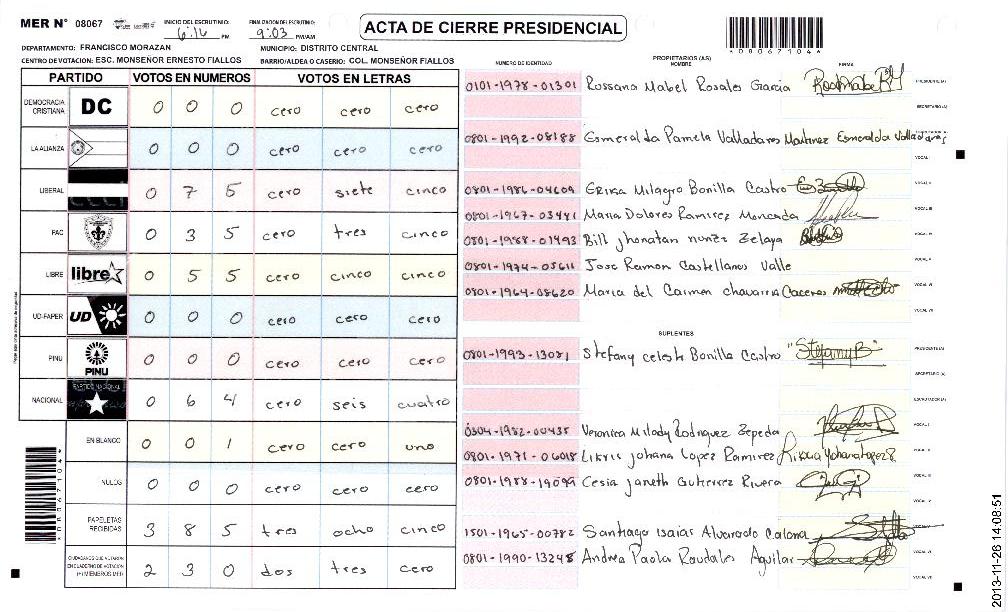 MER N° 08067 INICIO DEL ESCRUTINIO: 6:16 PM FINALIZACION DEL ESCRUTINIO: 9:03 PM/AM ACTA DE CIERRE PRESIDENCIAL
DEPARTAMENTO: FRANCISCO MORAZAN MUNICIPIO: DISTRITO CENTRAL
CENTRO DE VOTACION: ESC. MONSEÑOR ERNESTO FIALLOS BARRIO/ALDEA O CASERIO: COL. MONSEÑOR FIALLOS
*080671044*
NUMERO DE IDENTIDAD PROPIETARIOS (AS) NOMBRE FIRMA
PARTIDO VOTOS EN NUMEROS VOTOS EN LETRAS
DEMOCRACIA CRISTIANA DC 0 0 0 cero cero cero
LA ALIANZA 0 0 0 cero cero cero
LIBERAL 0 7 5 cero siete cinco
PAC 0 3 5 cero tres cinco
LIBRE libre 0 5 5 cero cinco cinco
UD-FAPER UD 0 0 0 cero cero cero
PINU PINU 0 0 0 cero cero cero
NACIONAL PARTIDO NACIONAL 0 6 4 cero seis cuatro
EN BLANCO 0 0 1 cero cero uno
NULOS 0 0 0 cero cero cero
PAPELETAS RECIBIDAS 3 8 5 tres ocho cinco
CIUDADANOS QUE VOTARON EN CUADERNO DE VOTACION (+) MIEMBROS MER 2 3 0 dos tres cero
0101-1978-01301 Rossana Mabel Rosales Garcia PRESIDENTE (A)
SECRETARIO (A)
0801-1992-08188 Esmeralda Pamela Valladares Martinez Esmeralda Valladares
VOCAL I
0801-1986-04609 Erika Milagro Bonilla Castro VOCAL II
0801-1967-03441 Maria Dolores Ramirez Moncada VOCAL III
0801-1988-01493 Bill Jhonatan nunez Zelaya VOCAL IV
0801-1974-05611 Jose Ramon Castellanos Valle VOCAL V
0801-1964-08620 Maria del Carmen chavarria Caceres VOCAL VI
VOCAL VII
SUPLENTES
0801-1993-13081 Stefany celeste Bonilla Castro "Stefany B" PRESIDENTE (A)
SECRETARIO (A)
ESCRUTADOR (A)
0504-1982-00435 Veronica Milady Rodriguez Zepeda VOCAL I
0801-1971-06018 Likric Johana Lopez Ramirez
0801-1988-19099 Cesia Janeth Gutierrez Rivera
1501-1965-00782 Santiago Isaias Alvarado Calona
0801-1990-13248 Andrea Paola Raudales Aguilar VOCAL VI
VOCAL VII
*080671044*
2013-11-26 14:08:51